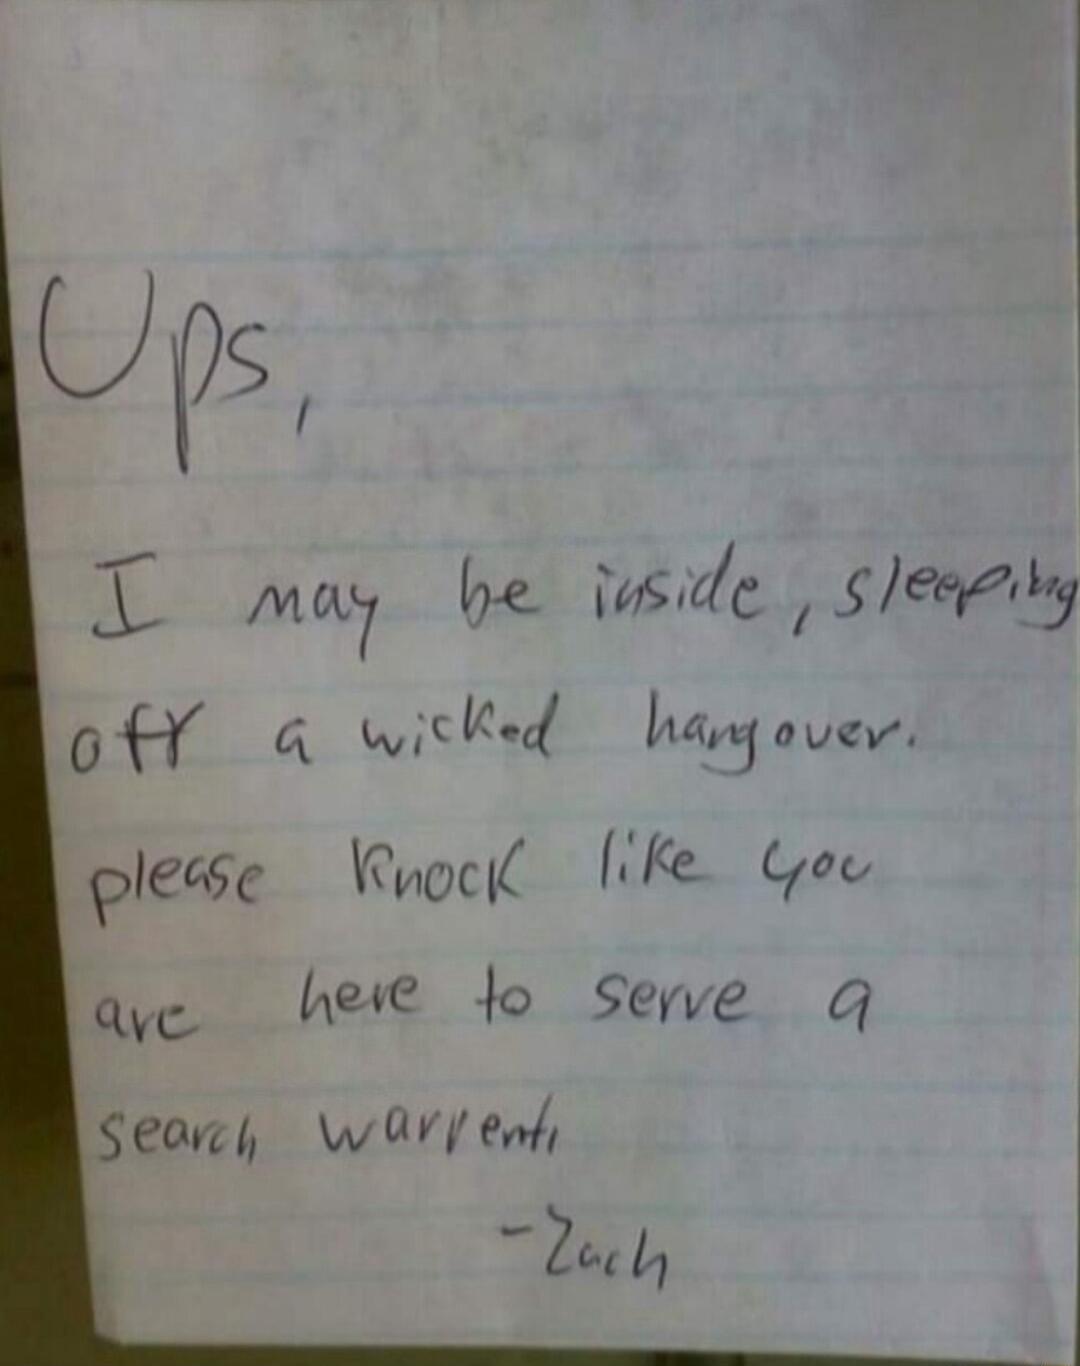 Ups,
I may be inside, sleeping
off a wicked hangover.
please knock like you
are here to serve a
search warrent,
-Zach